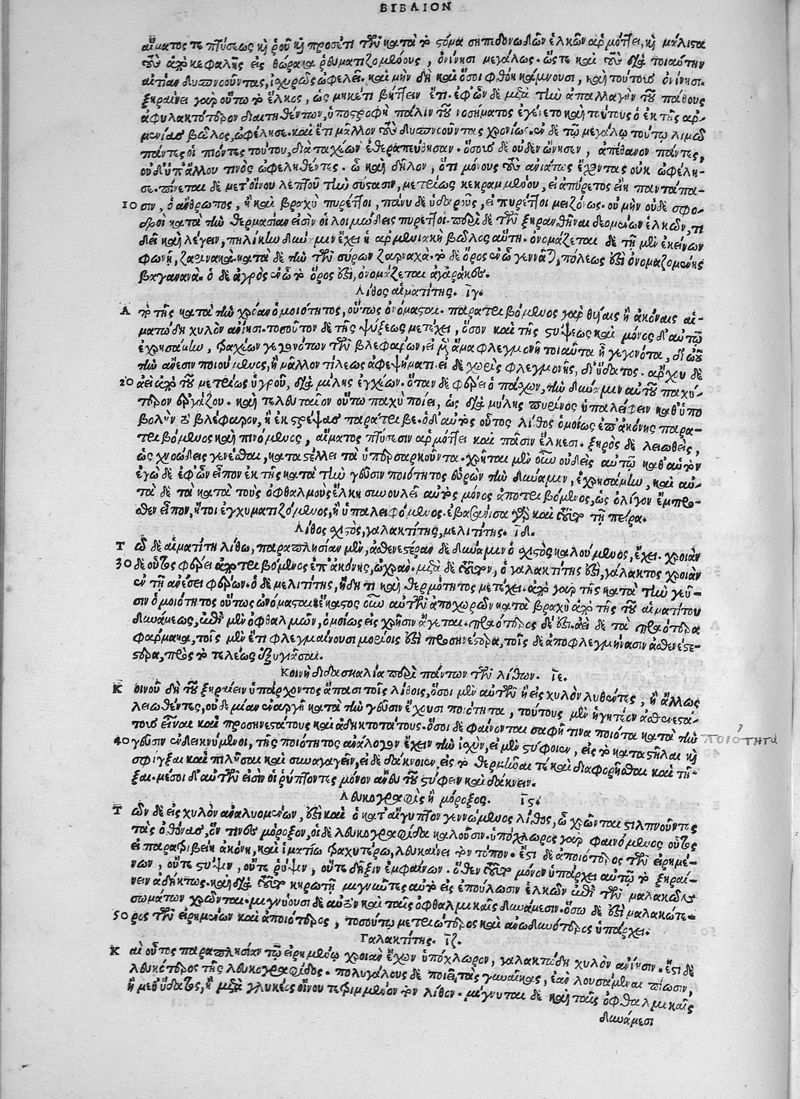 ΒΙΒΛΙΟΝ
αἵματος τε πτύσεως καὶ ῥοῦ καὶ προσέτι τῶν κατὰ τὸ στόμα σηπεδονωδῶν ἑλκῶν ἁρμόττει, καὶ μάλιστα
τοὺς ἀπὸ κεφαλῆς εἰς θώρακα ῥευματιζομένους, ὀνίνησι μεγάλως. ὥστε καὶ τοὺς διὰ τοιαύτην
αἰτίαν δυσπνοοῦντας, ἰσχυρῶς ὠφελεῖ. καὶ μὴν δὴ καὶ ὅσοι φθόῃ κάμνουσι, καὶ τούτους ὀνίνησι.
ξηραίνει γὰρ οὕτω τὸ ἕλκος, ὡς μηκέτι βήττειν ἔτι. ἐφ' ὧν δὲ μετὰ τὴν ἀπαλλαγὴν τοῦ πάθους
ἀφυλακτότερον διαιτηθέντων, ὑποστροφὴ πάλιν τοῦ νοσήματος ἐγένετο καὶ τούτους ὁ ἐκ τῆς ἀρ-
μενίας βῶλος, ὠφέλησε. καὶ ἔτι μᾶλλον τοὺς δυσπνοοῦντας χρονίως. ἐν δὲ τῷ μεγάλῳ τούτῳ λιμῷ
πάντες οἱ πιόντες τούτου, διαταχέων ἐθεραπεύθησαν. ὅσους δὲ οὐδὲν ὤνησεν, ἀπέθανον πάντες,
οὐδ' ὑπ' ἄλλου τινὸς ὠφεληθέντες. ᾧ καὶ δῆλον, ὅτι μόνους τοὺς ἀνιάτως ἔχοντας οὐκ ὠφέλη-
σε. πίνεται δὲ μετ' οἴνου λεπτοῦ τὴν σύστασιν, μετρίως κεκραμένου, εἰ ἀπύρετος εἴη παντάπα-
10 σιν, ὁ ἄνθρωπος, ἢ καὶ βραχὺ πυρέττοι, πάνυ δὲ ὑδαροῦς, εἰ πυρέττοι μειζόνως. οὐ μὴν οὐδὲ σφο-
δροὶ κατὰ τὴν θερμασίαν εἰσὶν οἱ λοιμώδεις πυρετοί. περὶ δὲ τῶν ξηρανθῆναι δεομένων ἑλκῶν, τί
δεῖ καὶ λέγειν, πηλίκην δύναμιν ἔχει ἡ ἀρμενιακὴ βῶλος αὕτη. ὀνομάζεται δὲ τῇ μὲν ἐκείνων
φωνῇ, ζαρινακὰ. κατὰ δὲ τὴν σύρων ζαρναχά. τὸ δὲ ὄρος ἐν ᾧ γεννᾶται, πόλεως ἐστὶ ὀνομαζομένης
βαγαυανά. ὁ δὲ ἀγρὸς ἐν ᾧ τὸ ὄρος ἐστὶ, ὀνομάζεται ἀγαράκης.
Λίθος αἱματίτης. ιγ.
Α πὸ τῆς κατὰ τὴν χρόαν ὁμοιότητος, οὕτως ὀνόμασται. παρατριβόμενος γὰρ θυίαις ἢ ἀκόναις αἱ-
ματώδη χυλὸν ἀνίησι. τοσοῦτον δὲ τῆς ψύξεως μετέχει, ὅσον καὶ τῆς στύψεως καὶ μόνος δ' αὐτῷ
ἐχρησάμην, τραχέων γεγονότων τῶν βλεφάρων, εἰ μὲν ἅμα φλεγμονῇ τοιαῦτα ἢ γεγονότα, δι' ὠοῦ
τὴν ἄνεσιν ποιούμενος, ἢ μᾶλλον τήλεως ἀφεψήματι. εἰ δὲ χωρὶς φλεγμονῆς, δι' ὕδατος. ἄρχου δὲ
20 ἀεὶ ἀπὸ τοῦ μετρίως ὑγροῦ, διὰ μήλης ἐγχέων. ὅταν δὲ φέρει ὁ πάσχων, τὴν δύναμιν αὐτοῦ παχύ-
τερον ἐργάζου. καὶ τελευταῖον οὕτω παχὺ ποίει, ὡς διὰ μήλης πυρῆνος ὑπαλείφειν καθ' ὑπο
βολὴν τὸ βλέφαρον, ἢ ἐκστρέψας παράτριβε. ὁ δ' αὐτὸς οὗτος λίθος ὁμοίως ἐπ' ἀκόνης παρα-
τριβόμενος καὶ πινόμενος, αἵματος πτύσιν ἁρμόττει καὶ πᾶσιν ἕλκεσι. ξηρὸς δὲ λειωθεὶς,
ὡς χνοώδεις γενέσθαι, καταστέλλει τὰ ὑπερσαρκοῦντα. χρῆται μὲν οὖν οὐδεὶς αὐτῷ καθ' αὑτὸν
ἐγὼ δὲ ἐφ' ὧν εἶπον ἐκ τῆς κατὰ τὴν γεῦσιν ποιότητος εὑρὼν τὴν δύναμιν, ἐχρησάμην, καὶ αὐ-
τὰ δὲ τὰ κατὰ τοὺς ὀφθαλμοὺς ἕλκη συνουλεῖ αὐτὸς μόνος ἀποτριβόμενος, ὡς ὀλίγον ἔμπρο-
σθεν εἶπον, ἤτοι ἐγχυματιζόμενος, ἢ ὑπαλειφόμενος. ἐβασάνισα γὰρ καὶ τοῦτο τῇ πείρᾳ.
Λίθος σχιστὸς, γαλακτίτης, μελιτίτης. ιδ.
Τ ῷ δὲ αἱματίτῃ λίθῳ, παραπλησίαν μὲν, ἀσθενεστέραν δὲ δύναμιν ὁ σχιστὸς καλούμενος, ἔχει. χροιὰν
30 δὲ οὗτος φέρει παρατριβόμενος ἐπ' ἀκόνης, ὠχράν. μετὰ δὲ τοῦτον, ὁ γαλακτίτης ἐστὶ, γάλακτος χροιὰν
ἐν τῇ ἀνέσει φέρων. ὁ δὲ μελιτίτης, ἤδη τι καὶ θερμότητος μετέχει. ἀπὸ γὰρ τῆς κατὰ τὴν γεῦ-
σιν ὁμοιότητος οὕτως ὠνόμασται ἕκαστος οὖν αὐτῶν ἀποχωρῶν κατὰ βραχὺ ἀπὸ τῆς τοῦ αἱματίτου
δυνάμεως, ἐπὶ μὲν ὀφθαλμῶν, ὁμοίως εἰς χρῆσιν ἄγεται. πραότερος δέ ἐστι. ἀεὶ δὲ τὰ πραότερα
φάρμακα, τοῖς μὲν ἔτι φλεγμαίνουσι μορίοις ἐστὶ προσηνέστερα, τοῖς δὲ ἀποφλεγμήνασιν ἀσθενέσ-
τερα, πρὸς τὸ τελέως ἐξυγιᾶσαι.
Κοινὴ διδασκαλία περὶ πάντων τῶν λίθων. ιε.
Κ οινοῦ δὴ τοῦ ξηραίνειν ὑπάρχοντος ἅπασι τοῖς λίθοις, ὅσοι μὲν αὐτῶν ἢ εἰς χυλὸν λυθέντες, ἢ ἄλλως
λειωθέντες, οὐδεμίαν ἐναργῆ κατὰ τὴν γεῦσιν ἔχουσι ποιότητα, τούτους μὲν ἡγητέον ἀσθενεστά-
τους εἶναι καὶ προσηνεστάτους καὶ ἀδηκτοτάτους. ὅσοι δὲ φαίνονται σαφῆ τινα ποιότητα κατὰ τὴν ΠΟΙΟΤΗΤΑ
40 γεῦσιν ἐνδεικνύμενοι, τῆς ποιότητος ἀνάλογον ἔχειν τὴν ἰσχὺν, εἰ μὲν στύφοιεν, εἰς τὸ καταστῆλαι καὶ
σφίγξαι καὶ πιλῆσαι καὶ συναγαγεῖν, εἰ δὲ δάκνοιεν, εἰς τὸ θερμῆναί τε καὶ διαφορῆσαι καὶ τῆ-
ξαι. μέσοι δ' αὐτῶν εἰσὶν οἱ ῥύπτοντες μόνον ἄνευ τοῦ στύφειν καὶ δάκνειν.
Λευκογραφὶς ἢ μόροξος. ιϛ.
Τ ῶν δὲ εἰς χυλὸν ἀναλυομένων, ἐστὶ καὶ ὁ κατ' αἴγυπτον γεννώμενος λίθος, ᾧ χρῶνται στιλπνοῦντες
τὰς ὀθόνας, ὅν τινες μόροξον, οἱ δὲ λευκογραφίδα καλοῦσιν. ὑπόχλωρος γὰρ φαινόμενος οὗτος
εἰ παρατριβείη ἀκόνῃ, καὶ ἱματίῳ τραχυτέρῳ, λευκαίνει τὸν τόπον. ἔστι δὲ ἀποιότερος τῶν εἰρημέ-
νων, οὔτε στύψιν, οὔτε ῥύψιν, οὔτε δῆξιν ἐμφαίνων. ὅθεν τοῦτο μόνον ὑπάρχει αὐτῷ τὸ ξηραί-
νειν ἀδήκτως. καὶ διὰ τοῦτο κηρωτῇ μιγνύντες αὐτὸ εἰς ἐπούλωσιν ἑλκῶν ἐπὶ τῶν μαλακῶν
σωμάτων χρῶνται. μιγνύουσι δὲ αὐτὸν καὶ ταῖς ὀφθαλμικαῖς δυνάμεσιν. ὅσῳ δὲ ἐστὶ μαλακώτε-
50 ρος τῶν εἰρημένων καὶ ἀποιότερος, τοσούτῳ μετριώτερος καὶ ἀνωδυνώτερος ὑπάρχει.
Γαλακτίτης. ιζ.
Κ αὶ οὗτος παραπλησίαν τῷ εἰρημένῳ χροιὰν ἔχων ὑπόχλωρον, γαλακτώδη χυλὸν ἀνίησιν. ἔστι δὲ
λευκότερος τῆς λευκογραφίδος. πολυγάλους δὲ ποιεῖ, τὰς γυναῖκας, ἐὰν λουσάμεναι πίωσιν,
ἢ μεθ' ὕδατος, ἢ μετὰ γλυκέος οἴνου τετριμμένον τὸν λίθον. μίγνυται δὲ καὶ ταῖς ὀφθαλμικαῖς
δυνάμεσι